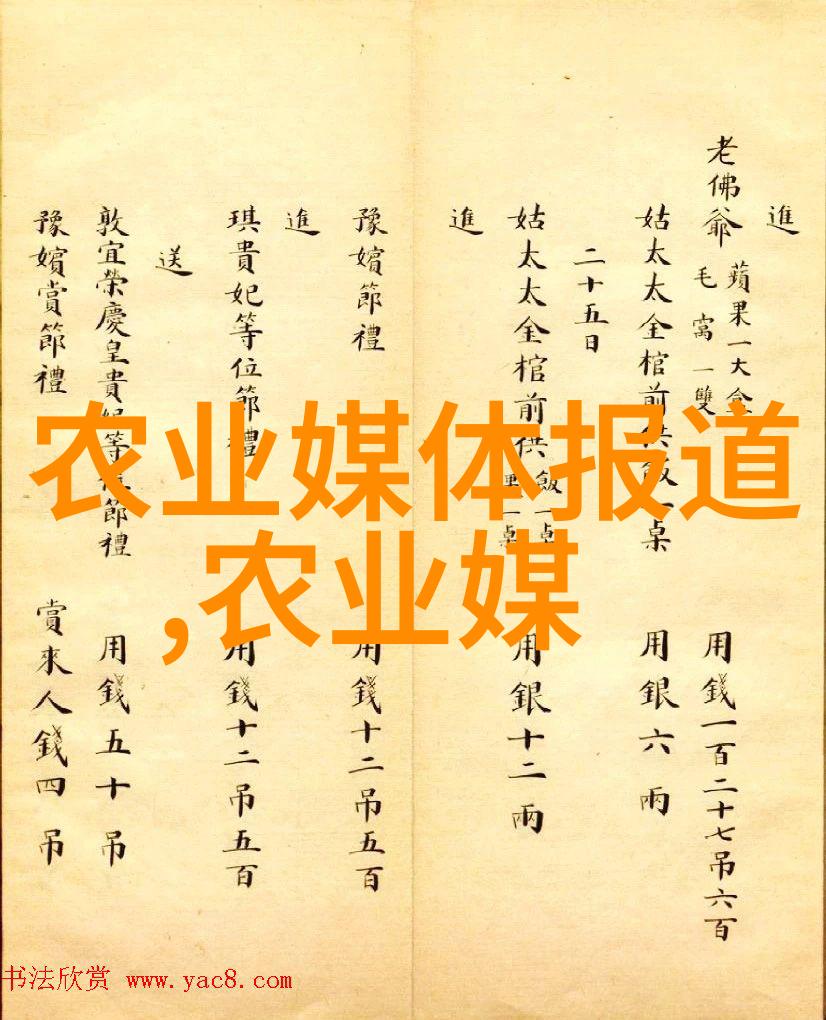 進
老佛爺 蘋果一大盒
毛窩一雙 用錢一百二十七吊六百
姑太太金棺前供飯一桌 用銀六兩
二十五日
姑太太金棺前供 飯一桌
一桌 用銀十二兩
進
豫嬪節禮 用錢十二吊五百
進
琪貴妃等位節禮 用錢十二吊五百
送
敦宜榮慶皇貴妃等位節禮 用錢五十吊
豫嬪賞節禮 賞來人錢四吊
农业媒体报道
,农业媒
书法欣赏 www.yac8.com